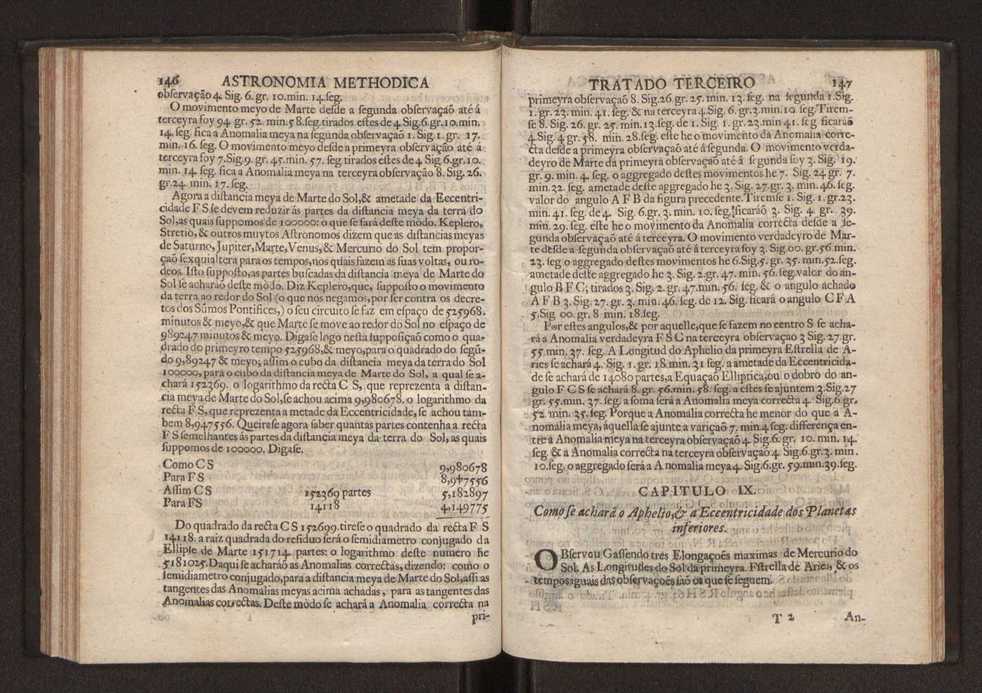 146 ASTRONOMIA METHODICA
observação 4. Sig. 6. gr. 10.min. 14.seg.
O movimento meyo de Marte desde a segunda observaçaõ atè á
terceyra soy 94 gr. 52. min.58.seg.tirados estes de 4.Sig.6.gr.10.min.
14. seg. fica a Anomalia meya na segunda observaçaõ 1. Sig. 1. gr. 17.
min. 16. seg. O movimento meyo desde a primeyra observação atè á
terceyra foy 7.Sig.9. gr. 45. min. 57. seg tirados estes de 4 Sig.6.gr.10.
min. 14. seg. fica a Anomalia meya na terceyra observação 8. Sig. 26.
gr.24. min. 17. seg.
Agora a distancia meya de Marte do Sol,& ametade da Eccentri-
cidade F S se devem reduzir ás partes da distancia meya da terra do
Sol,as quais suppomos de 100000: o que se fará deste módo. Keplero,
Stretio, & outros muytos Astronomos dizem que as distancias meyas
de Saturno, Jupiter, Marte, Venus, & Mercurio do Sol tem propor-
çaõ sexquialtera para os tempos, nos quais fazem as suas voltas, ou ro-
deos. Isto supposto,as partes buscadas da distancia meya de Marte do
Sol se acharàõ deste módo. Diz Keplero,que, supposto o movimento
da terra ao redor do Sol (o que nos negamos, por ser contra os decre-
tos dos Sũmos Pontifices,) o seu circuito se faz em espaço de 525968.
minutos & meyo,& que Marte se move ao redor do Sol no espaço de
989247 minutos & meyo. Digase logo nesta supposiçaõ como o qua-
drado do primeyro tempo 525968,& meyo, para o quadrado do segũ-
do 9,89247 & meyo; assim o cubo da distancia meya da terra do Sol
100000, para o cubo da distancia meya de Marte do Sol, a qual se a-
chará 152369. o logarithmo da recta C S, que representa a distan-
cia meya de Marte do Sol,se achou acima 9,980678. o logarithmo da
recta F S, que representa a metade da Eccentricidade, se achou tam-
bem 8,947556. Queirese agora saber quantas partes contenha a recta
F S semelhantes ás partes da distancia meya da terra do Sol, as quais
suppomos de 100000. Digase.
Como C S 9,980678
Para F S 8,947556
Assim C S 152369 partes 5,182897
Para FS 14118 4,149775
Do quadrado da recta C S 152699. tirese o quadrado da recta F S
14118. a raiz quadrada do residuo será o semidiametro conjugado da
Ellipse de Marte 151714. partes: o logarithmo deste numero he
5181025. Daqui se acharàõ as Anomalias correctas, dizendo: como o
semidiametro conjugado,para a distancia meya de Marte do Sol,assi as
tangentes das Anomalias meyas acima achadas, para as tangentes das
Anomalias correctas. Deste módo se achará a Anomalia correcta na
pri-
TRATADO TERCEIRO 147
primeyra observaçaõ 8. Sig.26 gr. 25. min. 13. seg. na segunda 1.Sig.
1. gr. 23. min. 41. seg. & na terceyra 4.Sig. 6.gr.3.min.10 seg.Tirem-
se 8. Sig. 26. gr. 25. min.13.seg. de 1. Sig. 1. gr. 23.min 41. seg ficaràõ
4. Sig. 4 gr. 58. min. 28.seg. este he o movimento da Anomalia corre-
cta desde a primeyra observaçaõ atè á segunda. O movimento verda-
deyro de Marte da primeyra observaçaõ atè á segunda foy 3. Sig. 19.
gr. 9. min. 4. seg. o aggregado destes movimentos he 7. Sig. 24 gr. 7.
min.32. seg. ametade deste aggregado he 3. Sig. 27.gr. 3. min. 46. seg.
valor do angulo A F B da figura precedente. Tiremse 1. Sig. 1. gr.23.
min. 41. seg. de 4. Sig. 6.gr. 3. min. 10. seg. ficaràõ 3. Sig. 4. gr. 39.
min. 29. seg. este he o movimento da Anomalia correcta desde a se-
gunda observaçaõ atè á terceyra. O movimento verdadeyro de Mar-
te desde a segunda observaçaõ atè á terceyra foy 3. Sig.00. gr.56 min.
23. seg o aggregado destes movimentos he 6.Sig.5. gr. 35. min.52.seg.
ametade deste aggregado he 3. Sig. 2.gr. 47. min. 56. seg.valor do an-
gulo B F C; tirados 3. Sig. 2. gr. 47.min. 56. seg. & o angulo achado
A F B 3. Sig. 27. gr. 3. min. 46.seg. de 12. Sig. ficará o angulo C F A
5.Sig. 00. gr. 8 min. 18.seg.
Por estes angulos,& por aquelle,que se fazem no centro S se acha-
rá a Anomalia verdadeyra F S C na terceyra observaçaõ 3 Sig. 27.gr.
55.min. 37. seg. A Longitud do Aphelio da primeyra Estrella de A-
ries se achará 4. Sig. 1. gr. 18.min. 31 seg. a ametade da Eccentricida-
de se achará de 14080 partes, a Equaçaõ Elliptica,ou o dobro do an-
gulo F C S se achará 8. gr. 56.min. 58. seg. a estes se ajuntem 3.Sig.27
gr. 55.min. 37. seg. a soma será a Anomalia meya correcta 4. Sig.6.gr.
52 min. 35. seg. Porque a Anomalia correcta he menor do que a A-
nomalia meya, áquella se ajunte a variçaõ 7. min.4 seg. differença en-
tre a Anomalia meya na terceyra observaçaõ 4. Sig.6. gr. 10. min. 14.
seg. & a Anomalia correcta na terceyra observaçaõ 4. Sig.6 gr.3. min.
10.seg. o aggregado será a Anomalia meya 4. Sig.6.gr. 59.min.39.seg.
CAPITULO IX.
Como se achará o Aphelio,& a Eccentricidade dos Planetas
inferiores.
OBservou Gassendo tres Elongaçoẽs maximas de Mercurio do
Sol. As Longitudes do Sol da primeyra Estrella de Aries, & os
tempos iguais das observaçoẽs saõ os que se seguem.
T 2 An-